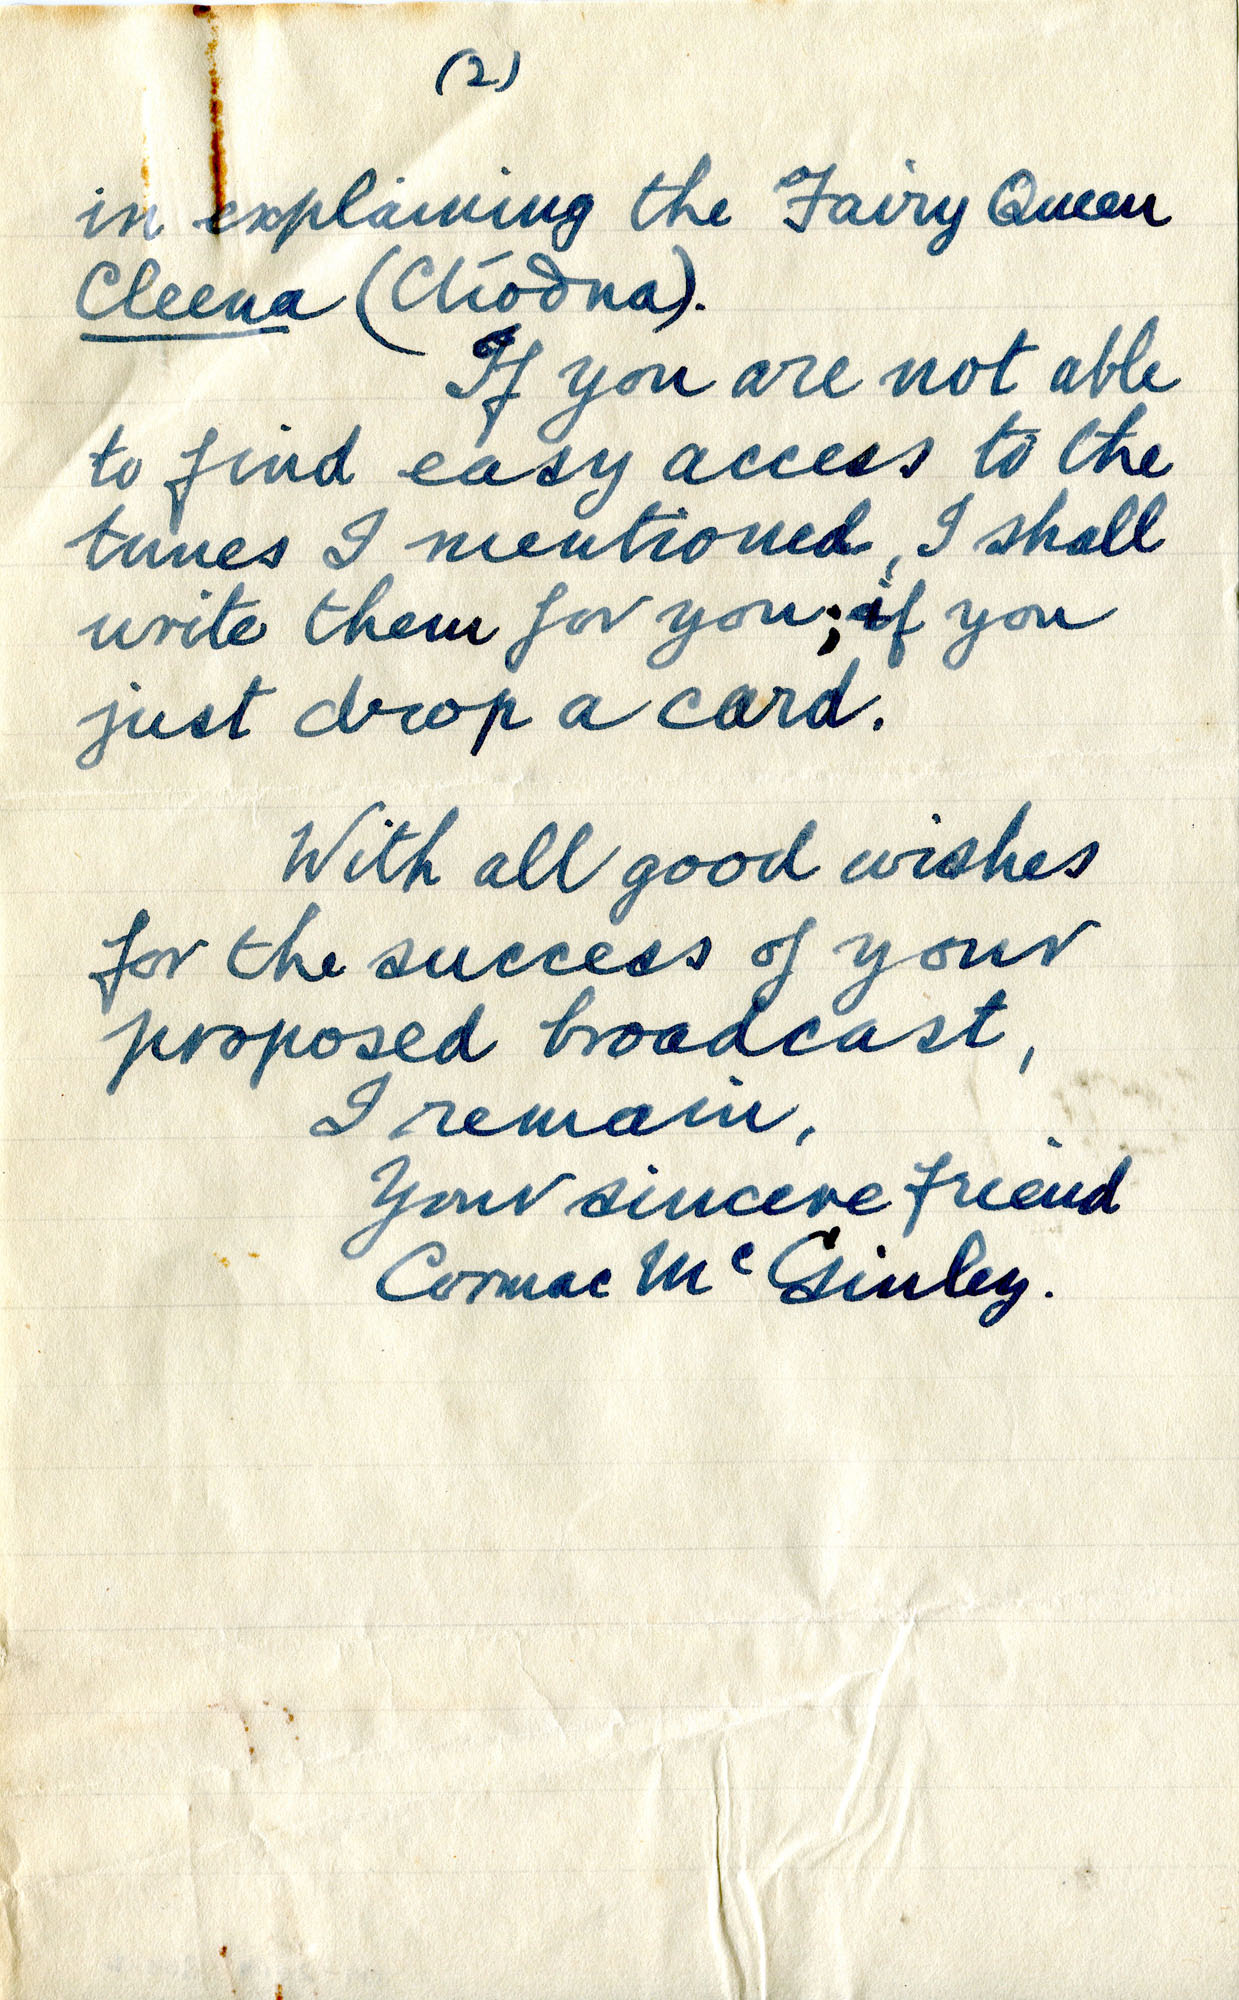 (2)
in explaining the Fairy Queen
Cleena (Clíoḋna).
If you are not able
to find easy access to the
tunes I mentioned, I shall
write them for you; if you
just drop a card.
With all good wishes
for the success of your
proposed broadcast,
I remain,
Your sincere friend
Cormac Mc Ginley.